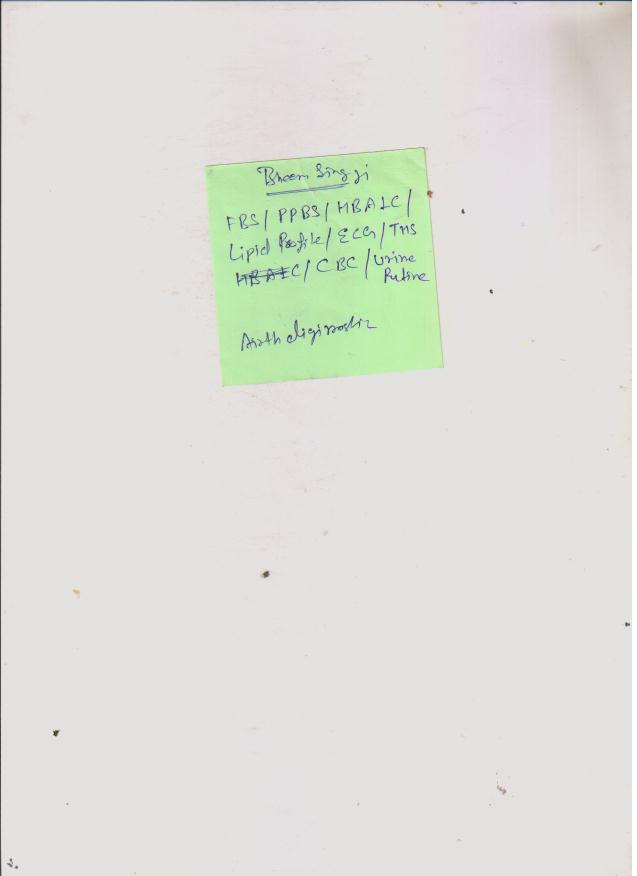 Bheem Sing ji
FBS/ PPBS/ HBA1C/
Lipid Profile/ ECG/ TMS
HBA1C/ CBC/ Urine
Rutine